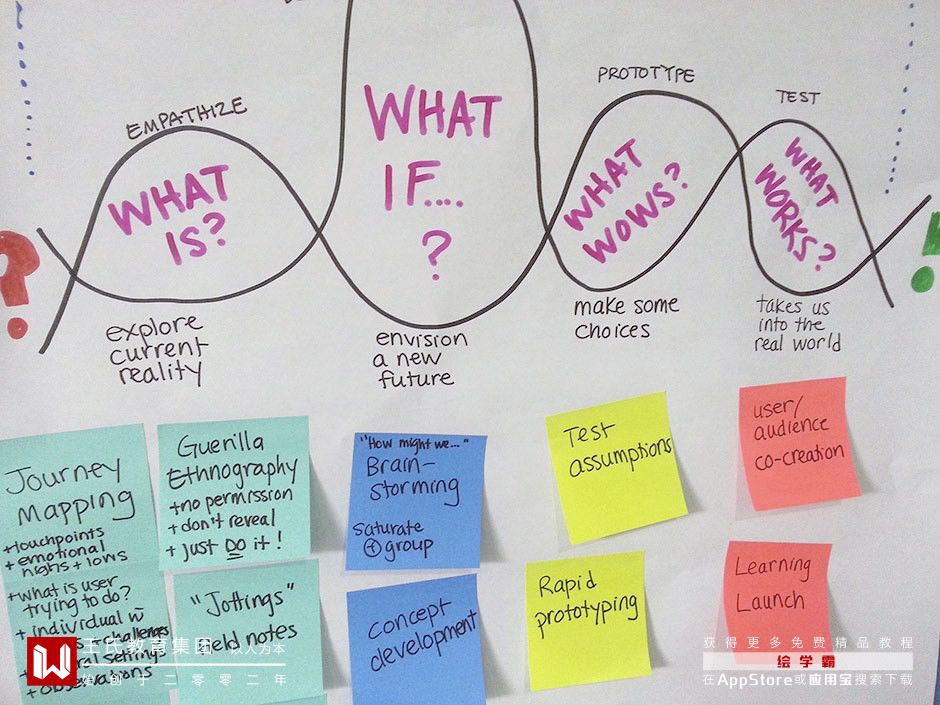 EMPATHIZE
WHAT
IS?
explore
current
reality
WHAT
IF....
?
envision
a new
future
PROTOTYPE
WHAT
WOWS?
make some
choices
TEST
WHAT
WORKS?
takes us
into the
real world
?
!
Journey
Mapping
+touchpoints
+ emotional
highs + lows
+what is user
trying to do?
+ individual w
challenges
settings
+ observations
Guerilla
Ethnography
+no permission
+don't reveal
+ Just Do it!
"Jottings"
field notes
"How might we..."
Brain-
storming
saturate
+ group
concept
development
Test
assumptions
Rapid
prototyping
user/
audience
co-creation
Learning
Launch
王氏教育集团 以人为本
始创于二零零二年
获得更多免费精品教程
绘学霸
在AppStore或应用宝搜索下载